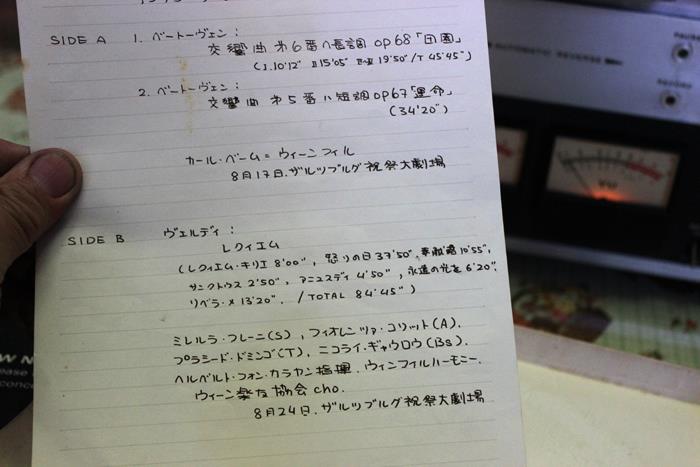 SIDE A 1. ベートーヴェン:
交響曲 第6番 ヘ長調 OP68「田園」
(I.10'12" II 15'05" III-V 19'50"/T 45'45")
2. ベートーヴェン:
交響曲 第5番 ハ短調 OP67「運命」
(34'20")
カール・ベーム=ウィーンフィル
8月17日.ザルツブルグ祝祭大劇場
SIDE B ヴェルディ:
レクィエム
(レクィエム・キリエ 8'00", 怒りの日 37'50", 奉献唱 10'55",
サンクトウス 2'50", アニュスディ 4'50", 永遠の光を 6'20",
リベラ・メ 13'20". /TOTAL 84'45")
ミレルラ・フレーニ(S), フィオレンツァ・コソット(A).
プラシード・ドミンゴ(T), ニコライ・ギャウロウ(Bs).
ヘルベルト・フォン・カラヤン指揮. ウィンフィルハーモニー.
ウィーン楽友協会 cho.
8月24日. ザルツブルグ祝祭大劇場
AUTOMATIC REVERSE
VU